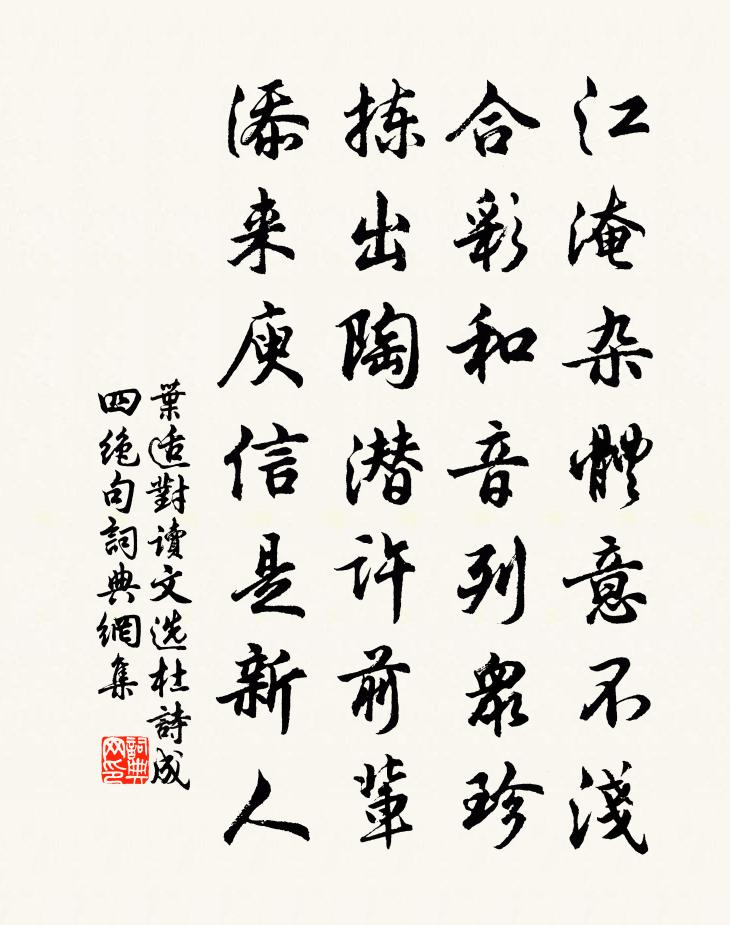 江淹杂體意不淺
合彩和音列眾珍
拣出陶潜许前輩
添来庾信是新人
葉适對讀文选杜詩成
四绝句詞典網集
詞典
网印